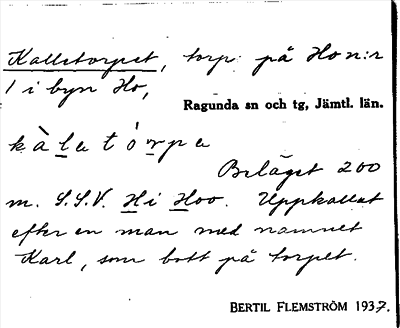 Kalletorpet, torp på Ho n:r
1 i byn Ho,
Ragunda sn och tg, Jämtl. län.
kàlatórpa
Beläget 200
m. S.S.V. H i Hoo. Uppkallat
efter en man med namnet
Karl, som bott på torpet.
BERTIL FLEMSTRÖM 1937.